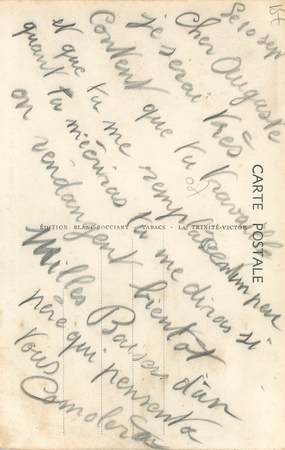 Le 10 sept
Cher Auguste
je serai très
Content que tu travaille
et que tu me remplasse un peu
quant tu m'écriras tu me diras si
on vendangent bientôt
Milles Baisers d'un
père qui pensent a
vous
CARTE POSTALE
ÉDITION BLANC-BOCCIART - TABACS - LA TRINITÉ-VICTOR